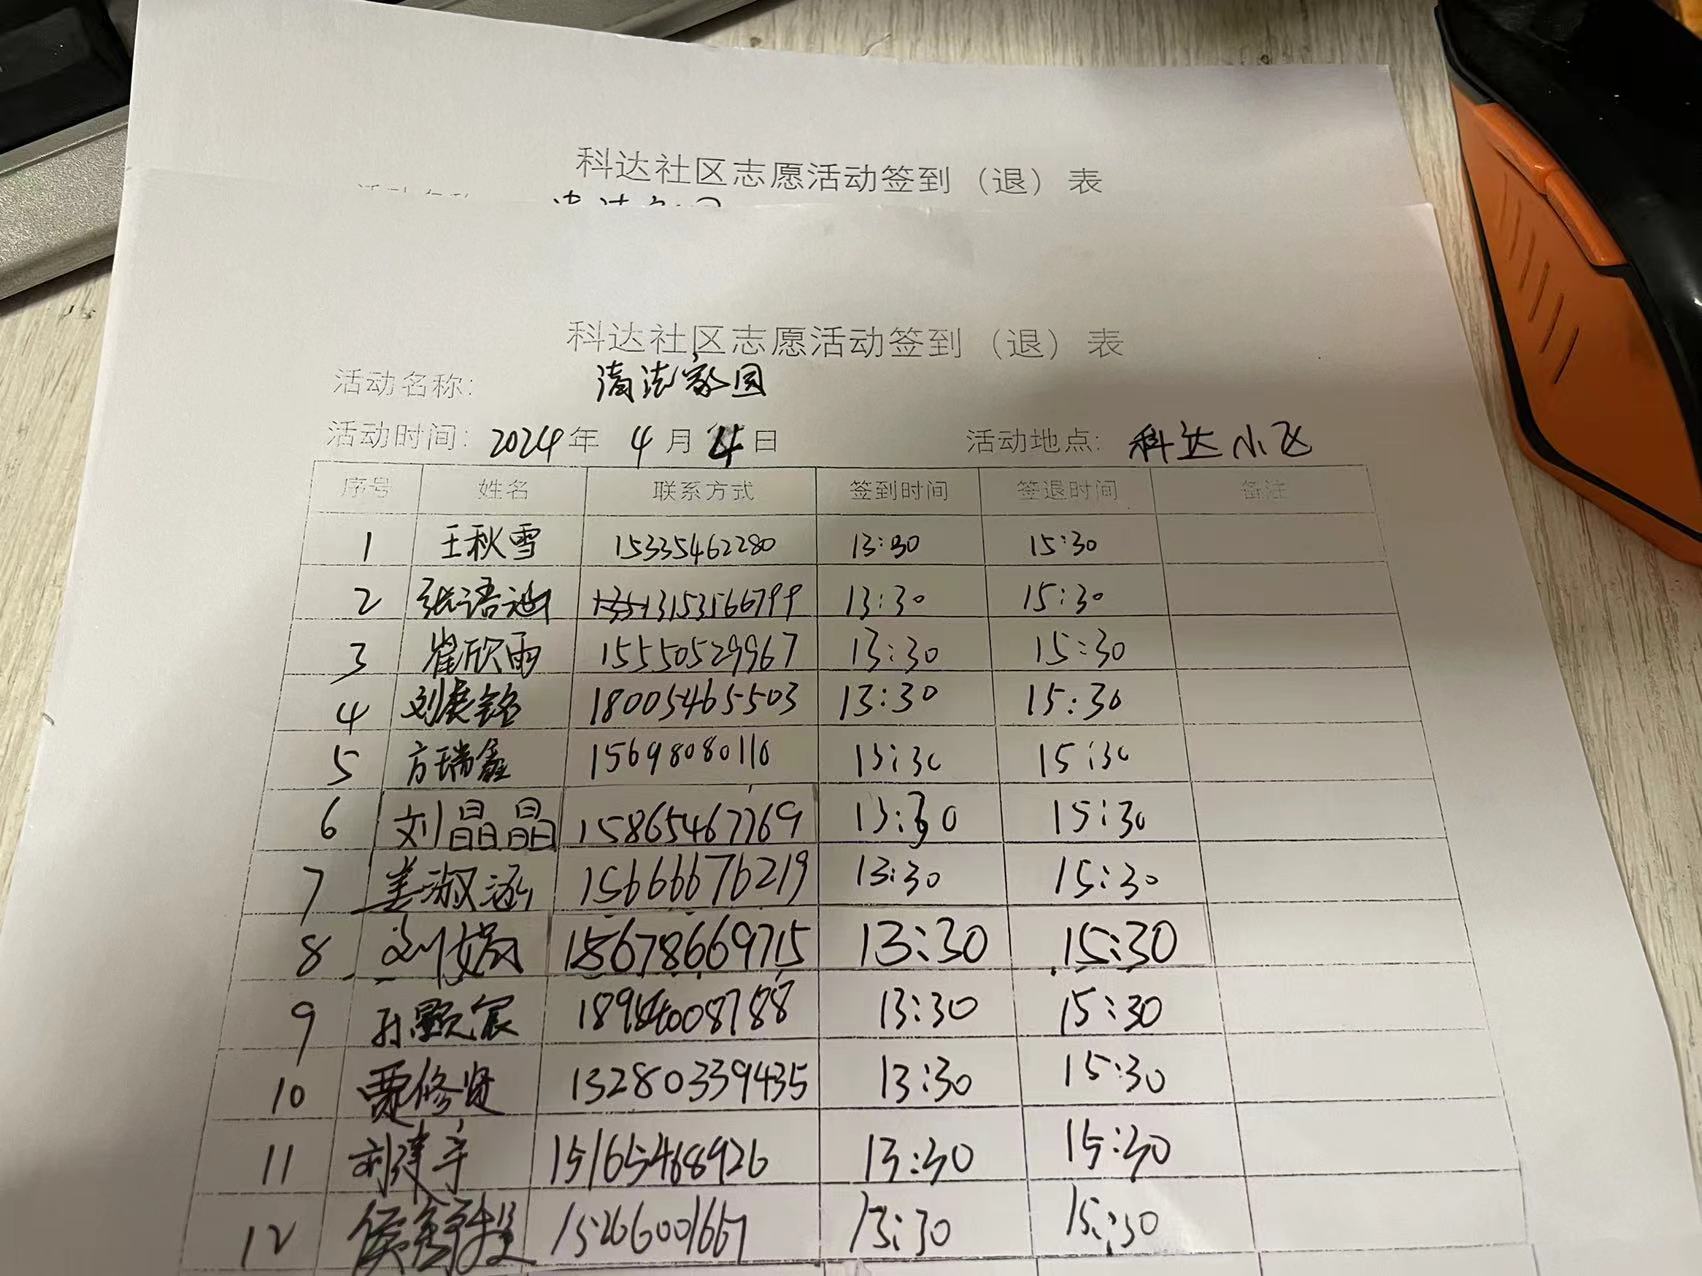 科达社区志愿活动签到（退）表
科达社区志愿活动签到（退）表
活动名称: 清洁家园
活动时间: 2024年 4月4日 活动地点: 科达小区
序号 姓名 联系方式 签到时间 签退时间 备注
1 王秋雪 15335462280 13:30 15:30
2 张语迪 13153166799 13:30 15:30
3 崔欣雨 15550529967 13:30 15:30
4 刘 铭 18005465503 13:30 15:30
5 方瑞鑫 15698080110 13:30 15:30
6 刘晶晶 15865467769 13:30 15:30
7 姜淑涵 15666676219 13:30 15:30
8 刘 15678669715 13:30 15:30
9 孙颢宸 13:30 15:30
10 贾修贤 13280339435 13:30 15:30
11 刘建宇 15165468926 13:30 15:30
12 15266001667 13:30 15:30